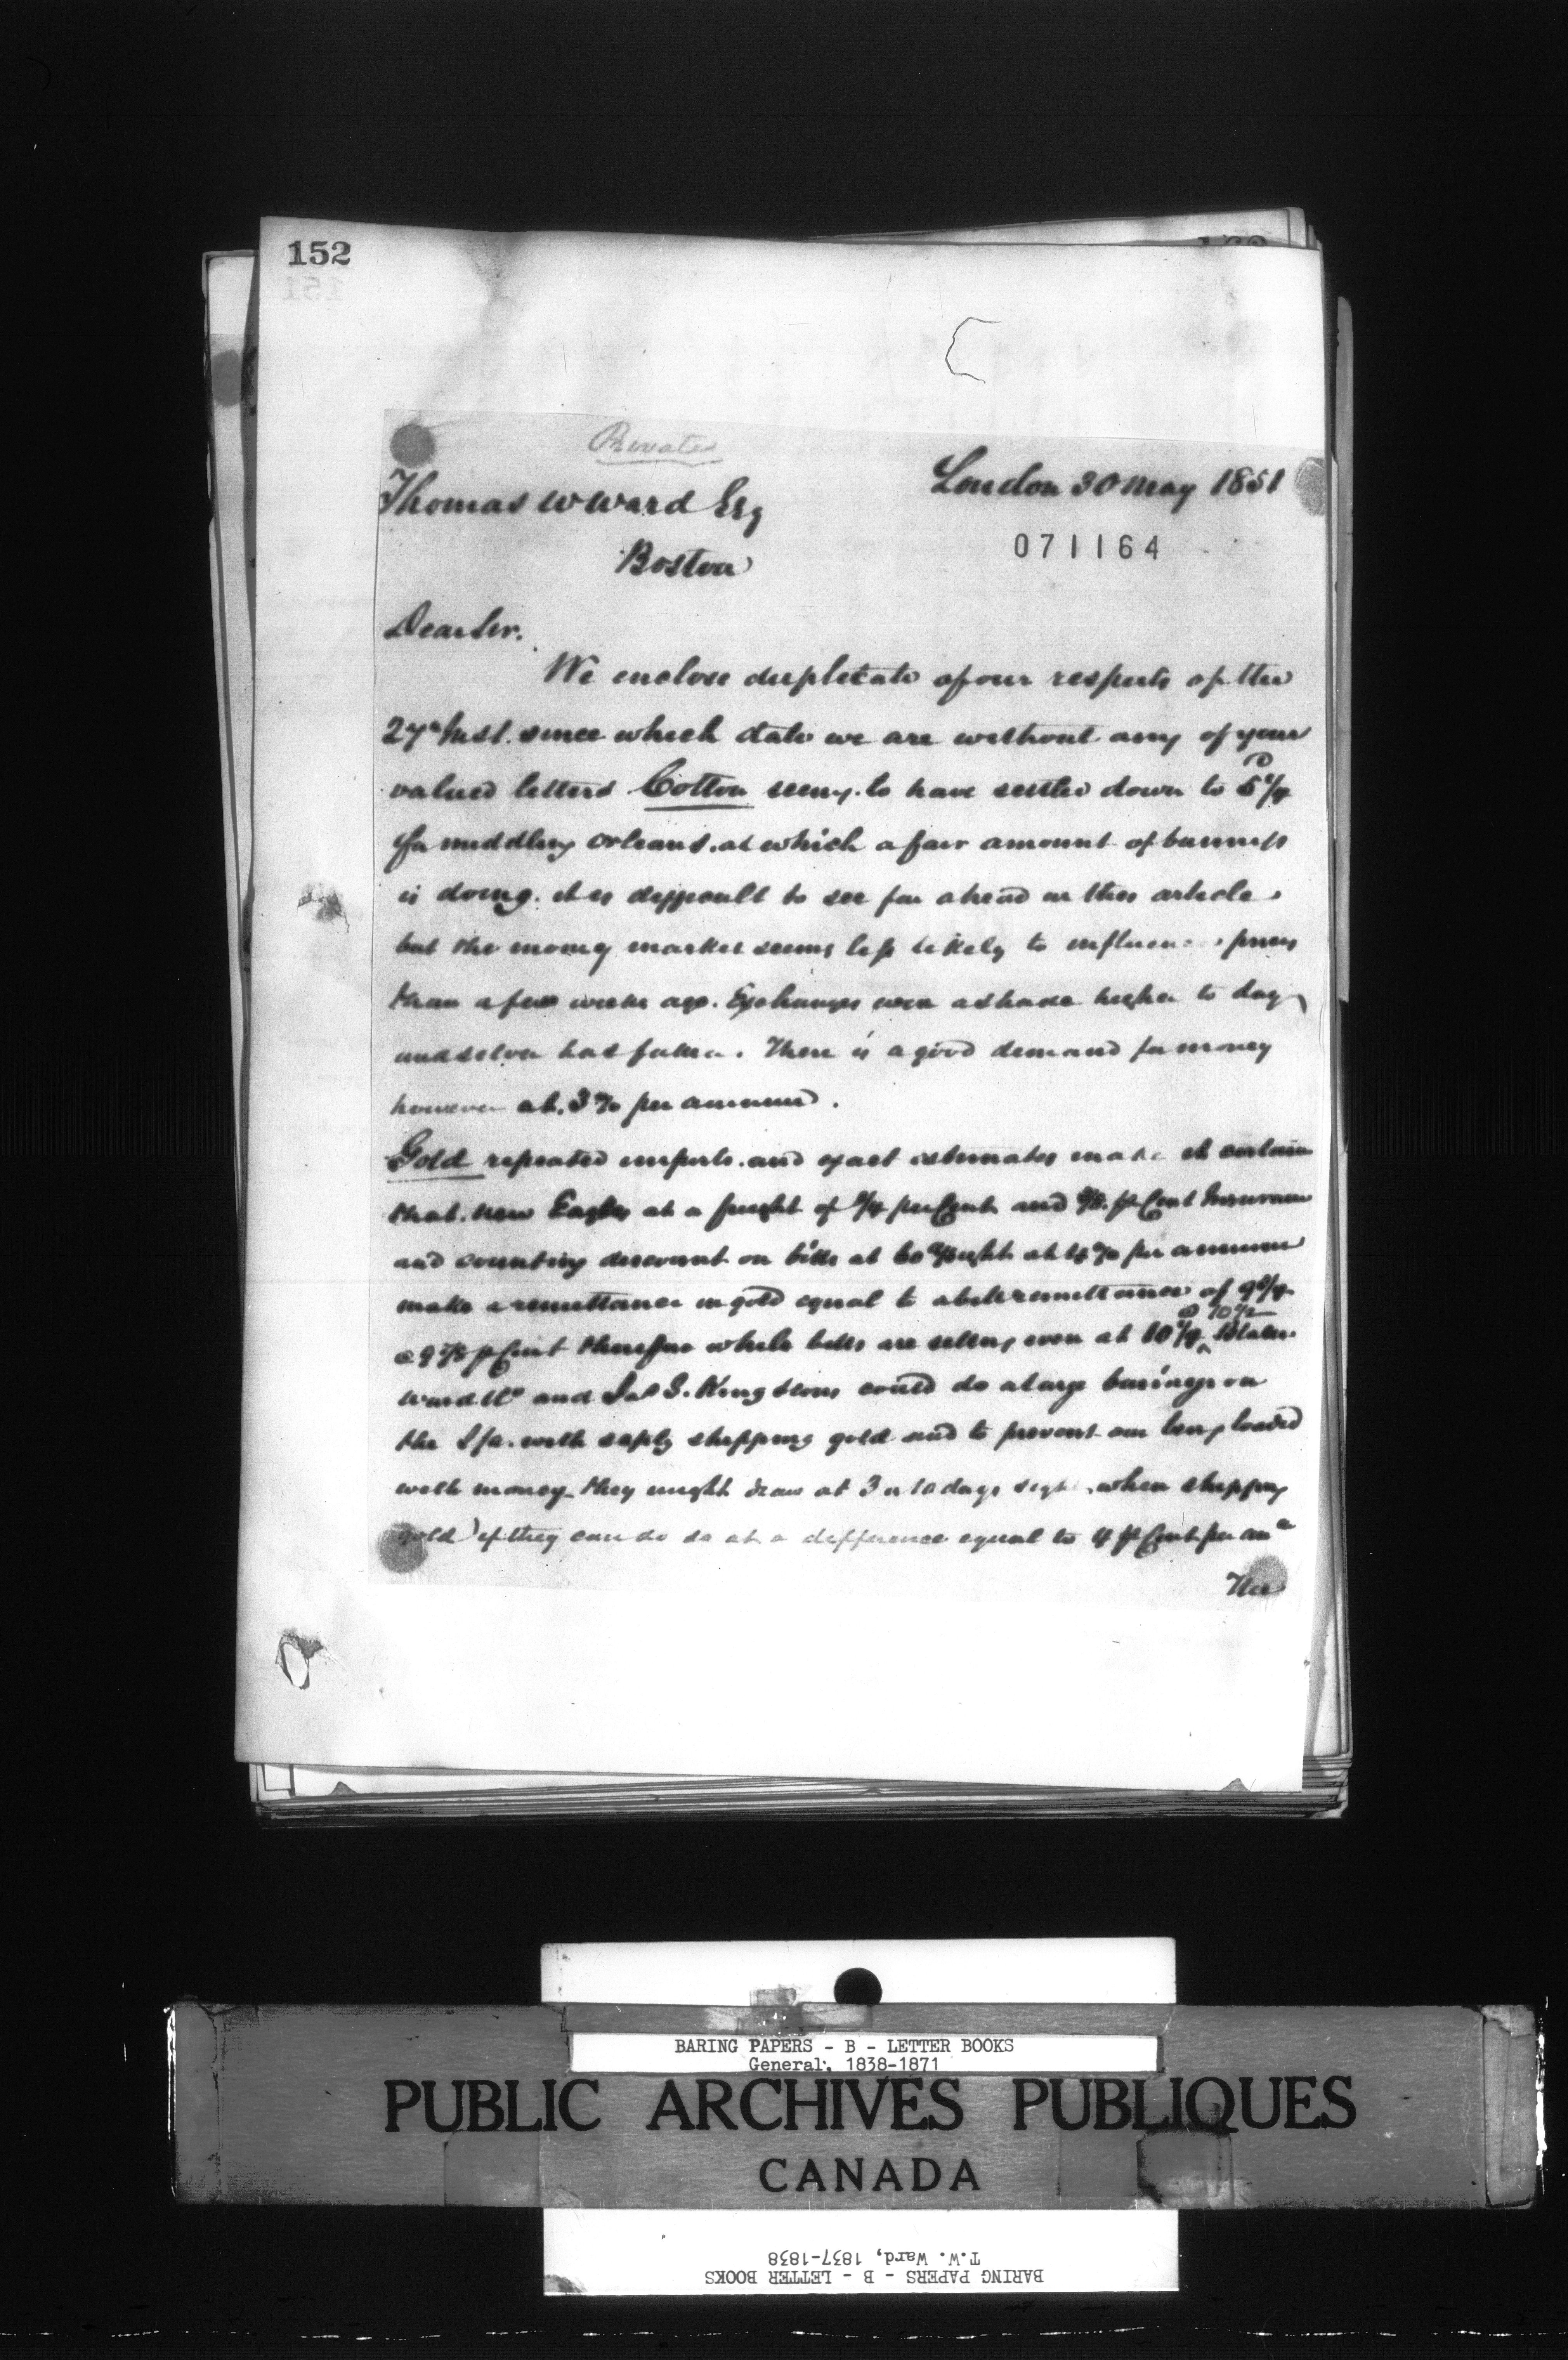 152
Private
London 30 May 1851
Thomas W Ward Esq
071164
Boston
Dear Sir.
We enclose duplicate of our respects of the
27th Inst. since which date we are without any of your
valued letters Cotton seems to have settled down to 5 1/4
for middling Orleans. at which a fair amount of business
is doing. it is difficult to see far ahead in this article.
but the money market seems less likely to influence prices
than a few weeks ago. Exchanges were a shade higher to day
and silver has fallen. There is a good demand for money
however at. 3% per annum.
Gold repeated imports. and exact estimates make it certain
that. new Eagles at a freight of per Cent and p Cent Insurance
and counting discount on bills at 60 d/sight at 4% per annum
make a remittance in gold equal to a bill remittance of
@ 9 7/8 p Cent therefore while bills are selling even at 10 1/4 @ 10 1/2
Ward & Co and Jas G. King & Sons could do a large business on
the with safety shipping gold and to prevent our being loaded
with money they might draw at 3 or 10 days sight when shipping
gold if they can do so at a difference equal to 4 p Cent per an
The
BARING PAPERS - B - LETTER BOOKS
General, 1838-1871
PUBLIC ARCHIVES PUBLIQUES
CANADA
BARING PAPERS - B - LETTER BOOKS
T.W. Ward, 1837-1838